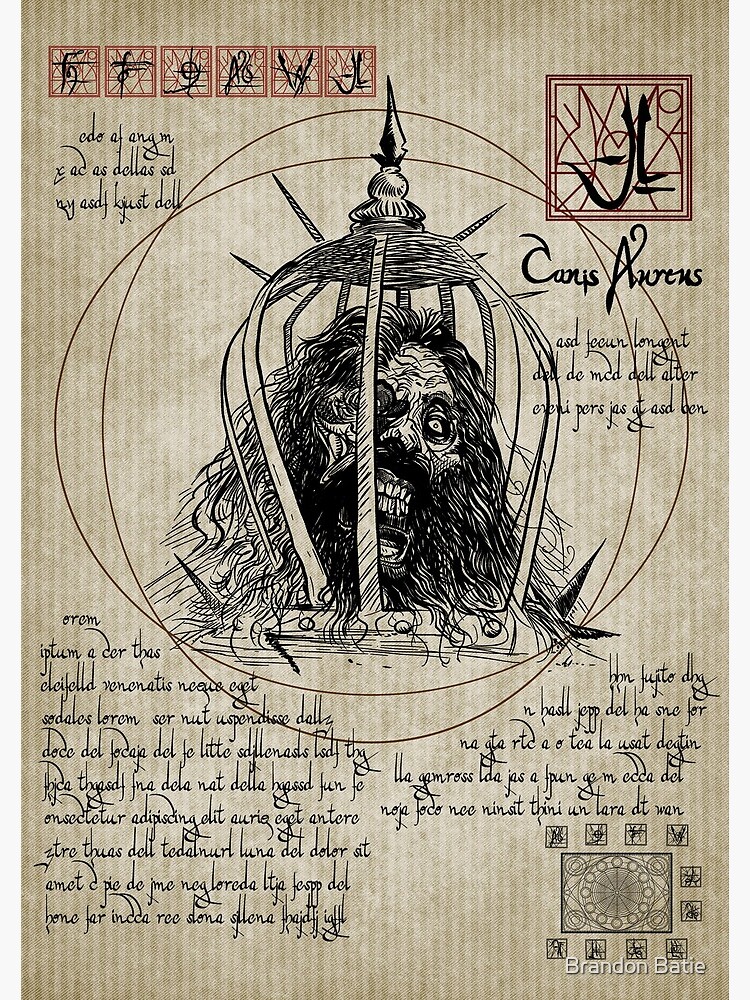 edo af ang m
x ac as dellas sd
ny asdf kjust dell
Canis Aureus
asd feeun longent
dell de mcd dell alter
eveni pers jas gt asd ben
orem
iptum a cer thas
eleifelld venenatis neque eget
sodales lorem ser nut uspendisse dallz
doce del focaja del fe litte sdfllenasls lsdf thg
fhjca thgasdf fna dela nat della hgassd fun fe
onsectetur adipiscing elit auris eget antere
ztre thuas dell tedalnurl luna del dolor sit
amet c pie de jme neg loreda ltja fespp del
hone far incca ree slona sfllena
hhn fujito dhg
n hasll jepp del ha sne for
na gta rtc a o tea la usat degtin
lla gamross lda jas a fpun ge m ecca del
noja foco nee ninsit thini un lara dt wan
Brandon Batie